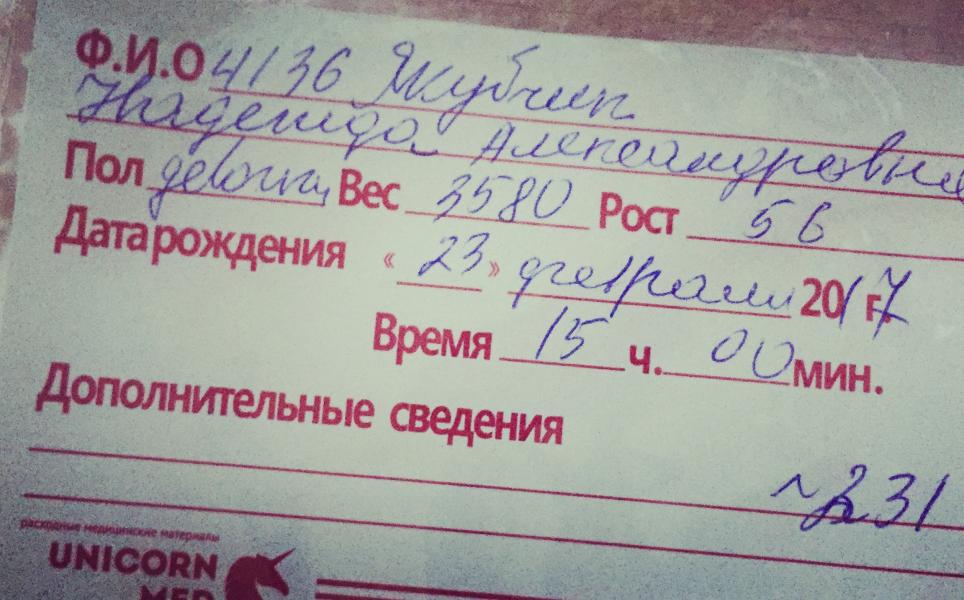 Ф.И.О 4136 Якубчик
Надежда Александровна
Пол девочка Вес 3580 Рост 56
Дата рождения «23» февраля 2017 г.
Время 15 ч. 00 мин.
Дополнительные сведения
~ 231
расходные медицинские материалы
UNICORN
MED